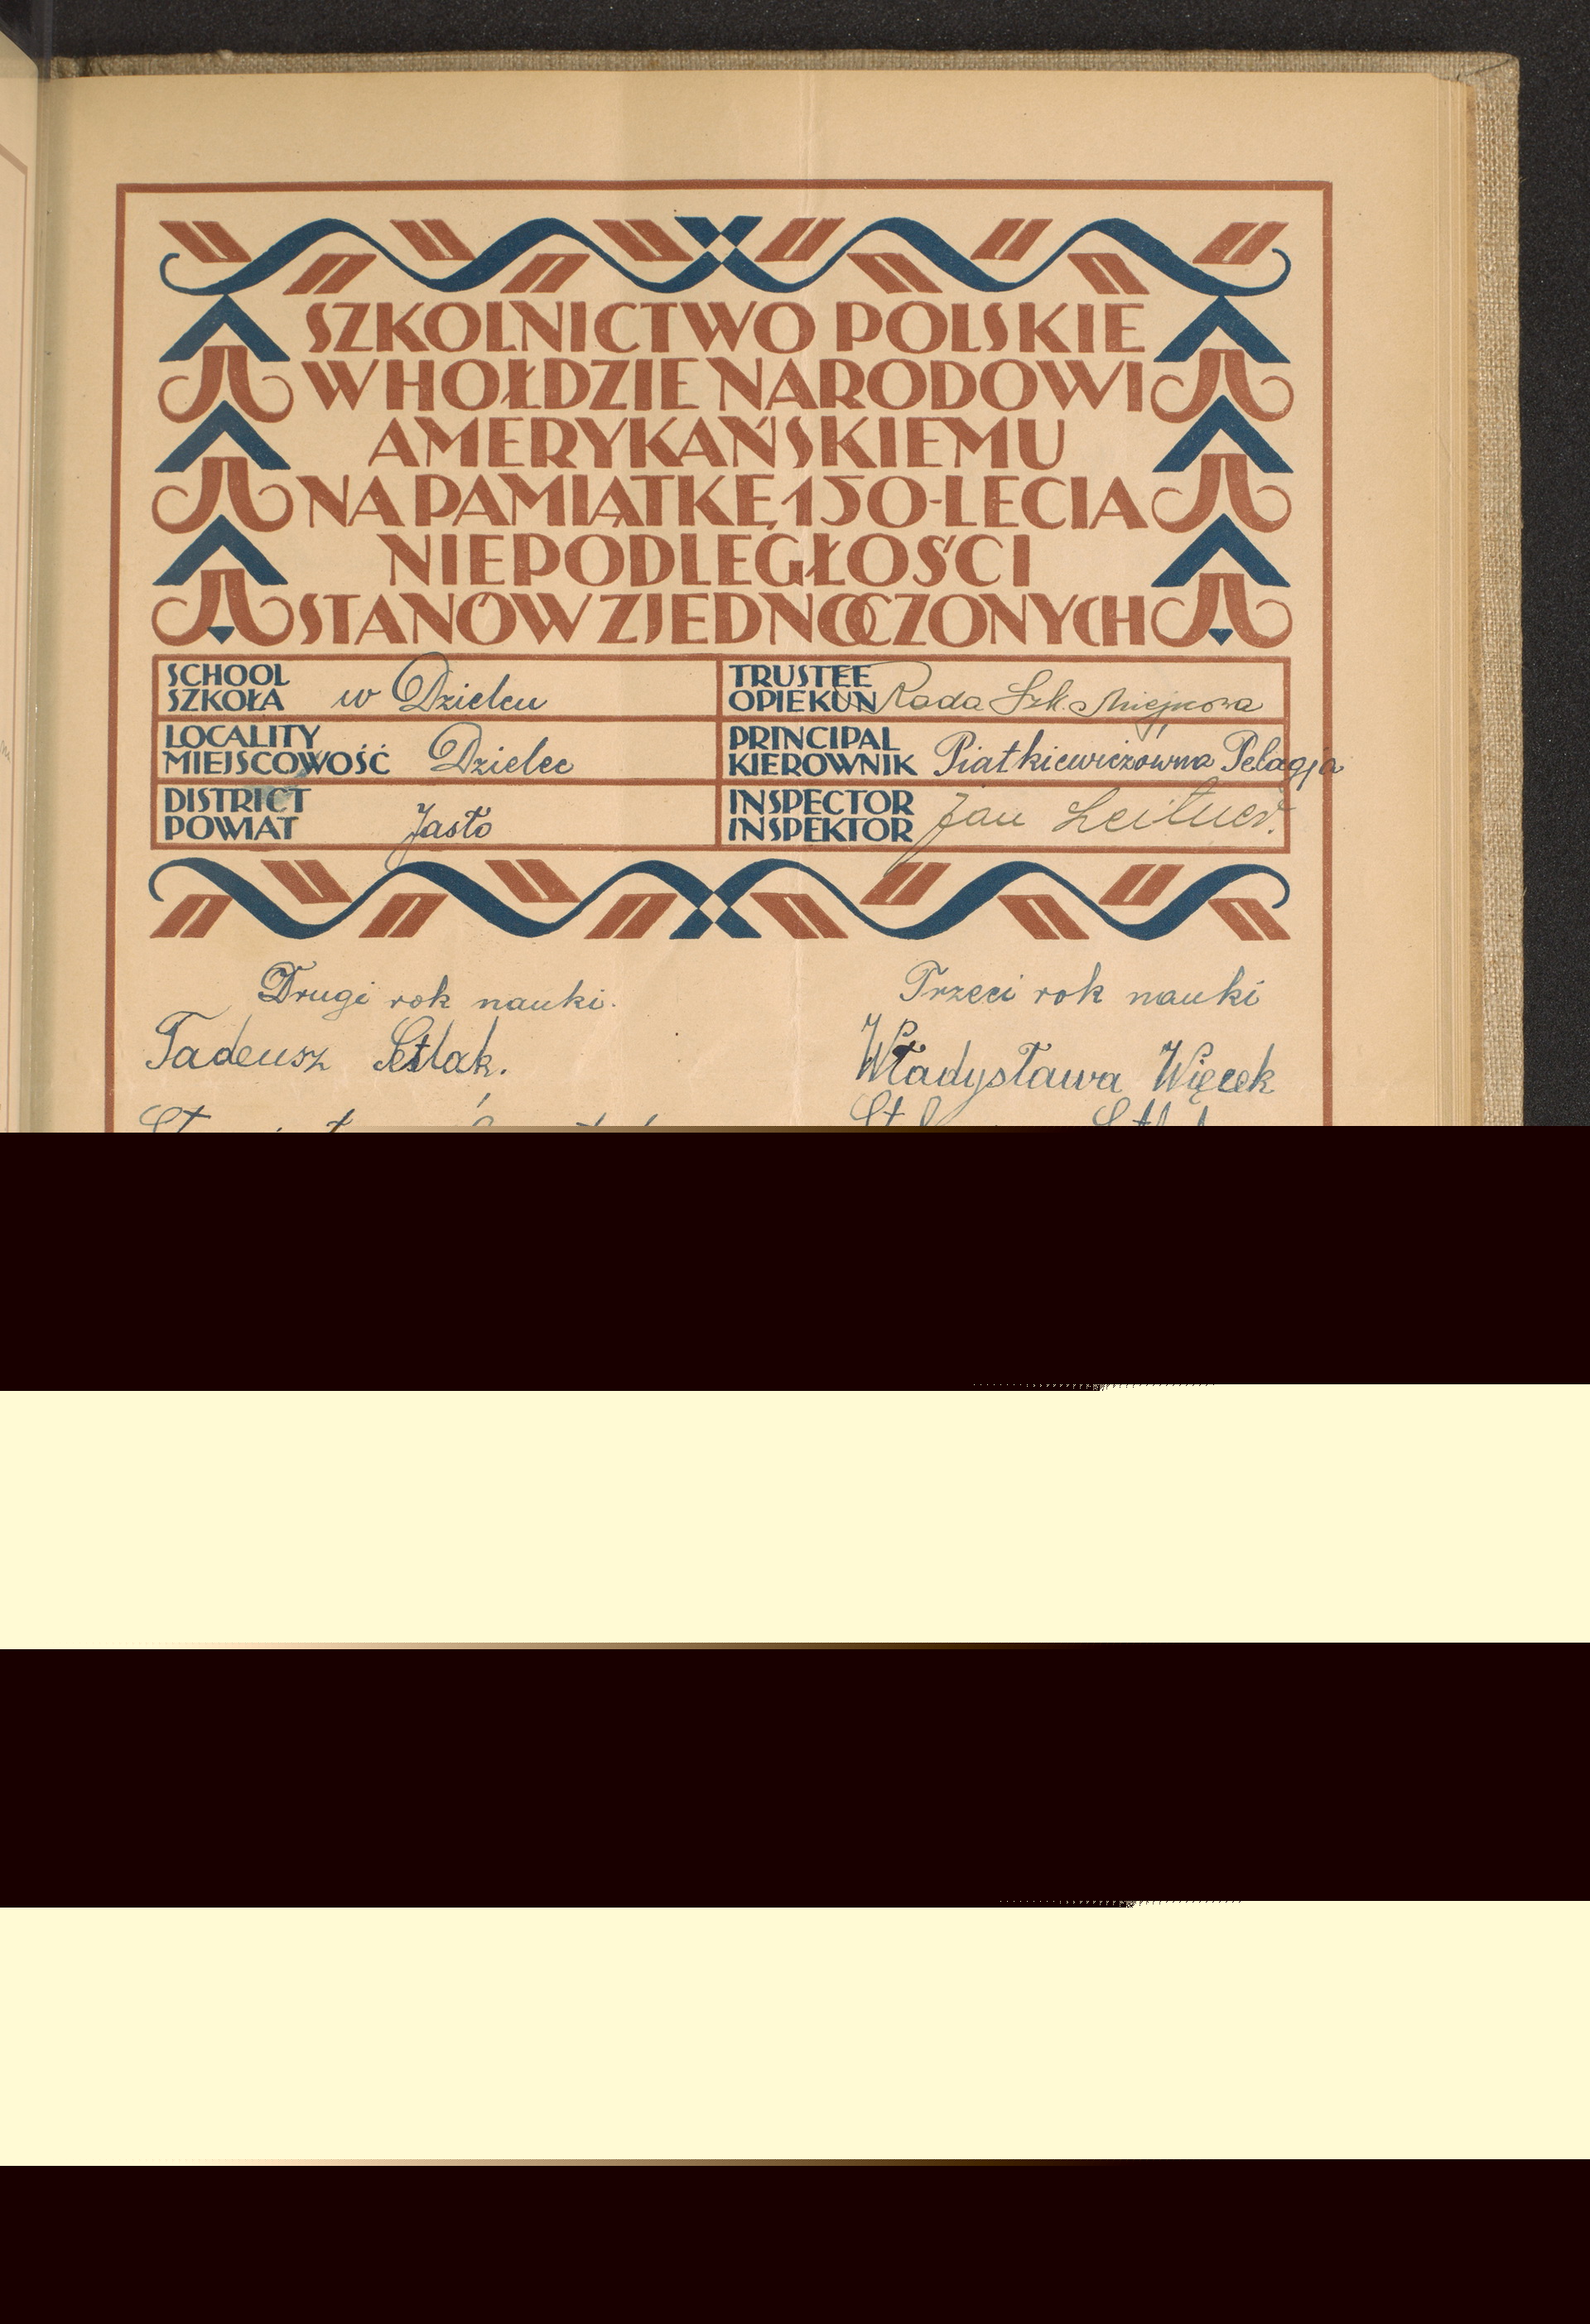 SZKOLNICTWO POLSKIE
W HOŁDZIE NARODOWI
AMERYKAŃSKIEMU
NA PAMIĄTKĘ 150-LECIA
NIEPODLEGŁOŚCI
STANÓW ZJEDNOCZONYCH
SCHOOL
SZKOŁA w Dzielcu
TRUSTEE
OPIEKUN Rada Szk. Miejscowa
LOCALITY
MIEJSCOWOŚĆ Dzielec
PRINCIPAL
KIEROWNIK Piatkiewiczówna Pelagja
DISTRICT
POWIAT Jasło
INSPECTOR
INSPEKTOR Jan Leitner.
Drugi rok nauki.
Tadeusz Setlak.
Trzeci rok nauki
Władysława Więcek